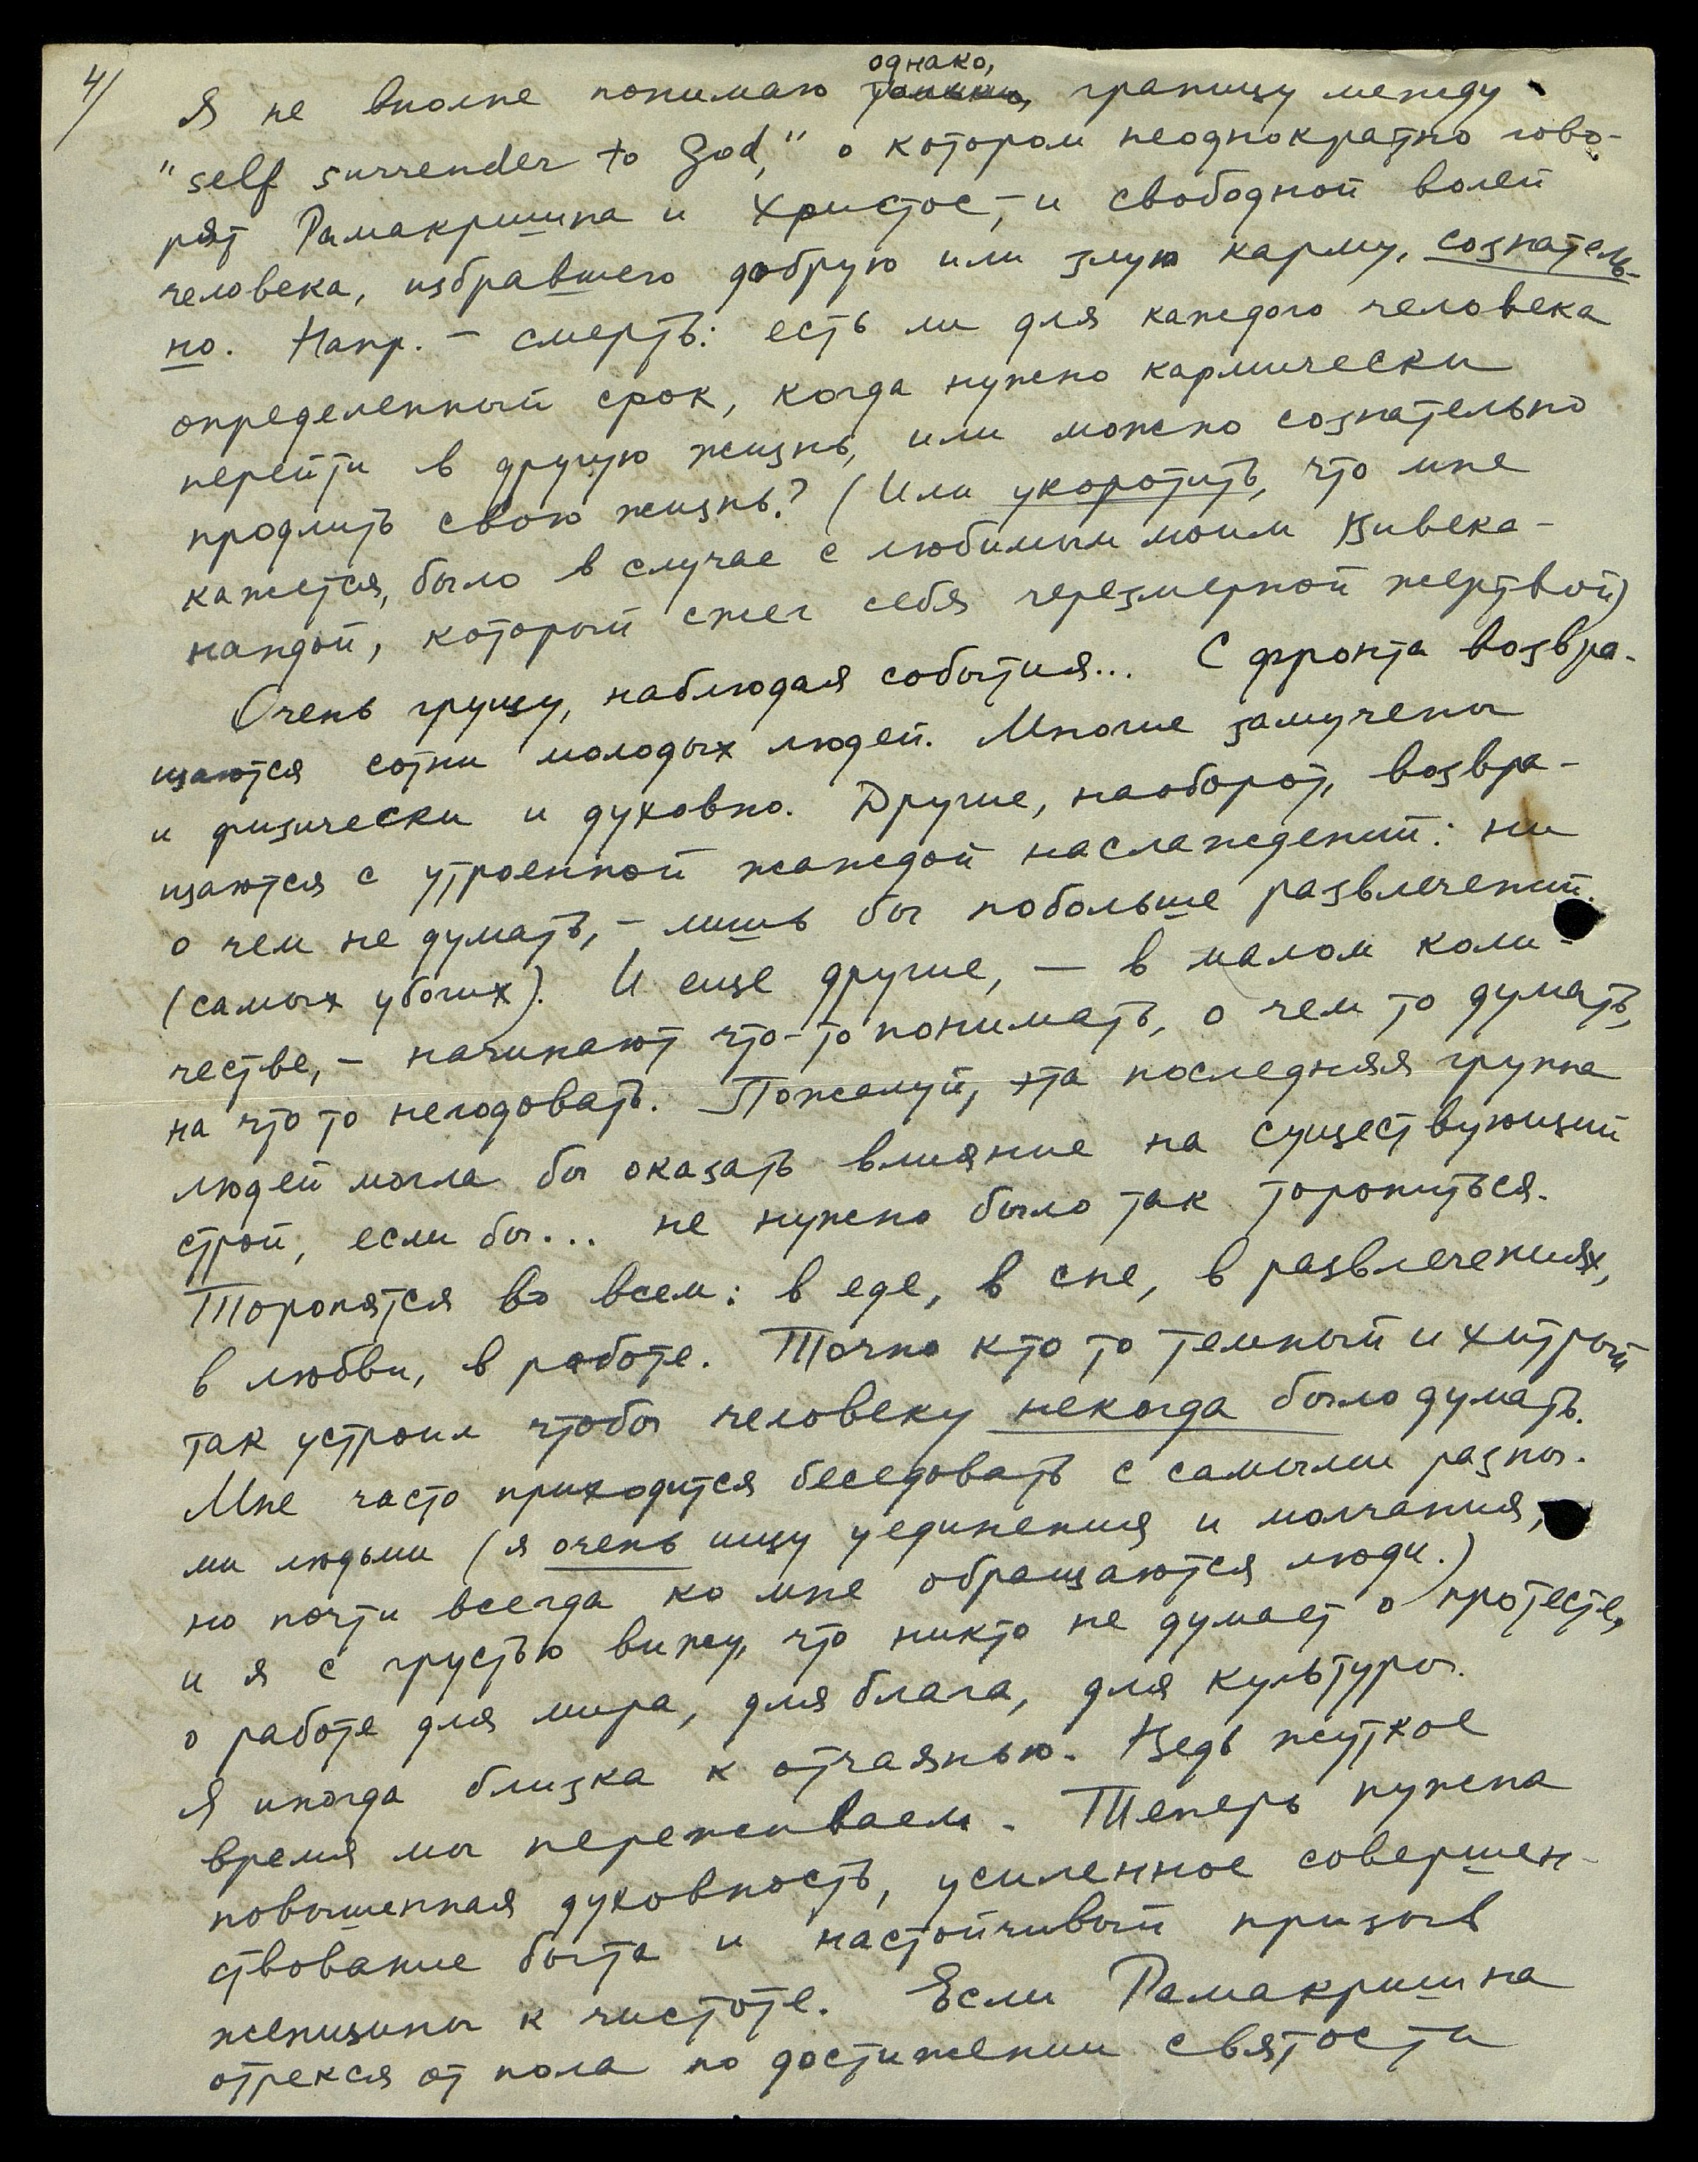 4/
однако,
Я не вполне понимаю границу между
"self surrender to God," о котором неоднократно гово-
рят Рамакришна и Христос, – и свободной волей
человека, избравшего добрую или злую карму, сознатель-
но. Напр. – смерть: есть ли для каждого человека
определенный срок, когда нужно кармически
перейти в другую жизнь, или можно сознательно
продлить свою жизнь? (Или укоротить, что мне
кажется, было в случае с любимым моим Вивека-
нандой, который сжег себя черезмерной жертвой)
Очень грущу, наблюдая события... С фронта возвра-
щаются сотни молодых людей. Многие замучены
и физически и духовно. Другие, наоборот, возвра-
щаются с утроенной жаждой наслаждений: ни
о чем не думать, – лишь бы побольше развлечений
(самых убогих). И еще другие, – в малом коли-
честве, – начинают что-то понимать, о чем то думать,
на что то негодовать. Пожалуй, эта последняя группа
людей могла бы оказать влияние на существующий
строй, если бы... не нужно было так торопиться.
Торопятся во всем: в еде, в сне, в развлечениях,
в любви, в работе. Точно кто то темный и хитрый
так устроил чтобы человеку некогда было думать.
Мне часто приходится беседовать с самыми разны-
ми людьми (я очень ищу уединения и молчания,
но почти всегда ко мне обращаются люди.)
и я с грустью вижу, что никто не думает о протесте,
о работе для мира, для блага, для культуры.
Я иногда близка к отчаянью. Ведь жуткое
время мы переживаем. Теперь нужна
повышенная духовность, усиленное совершен-
ствование быта и настойчивый призыв
женщины к чистоте. Если Рамакришна
отрекся от пола по достижении святости